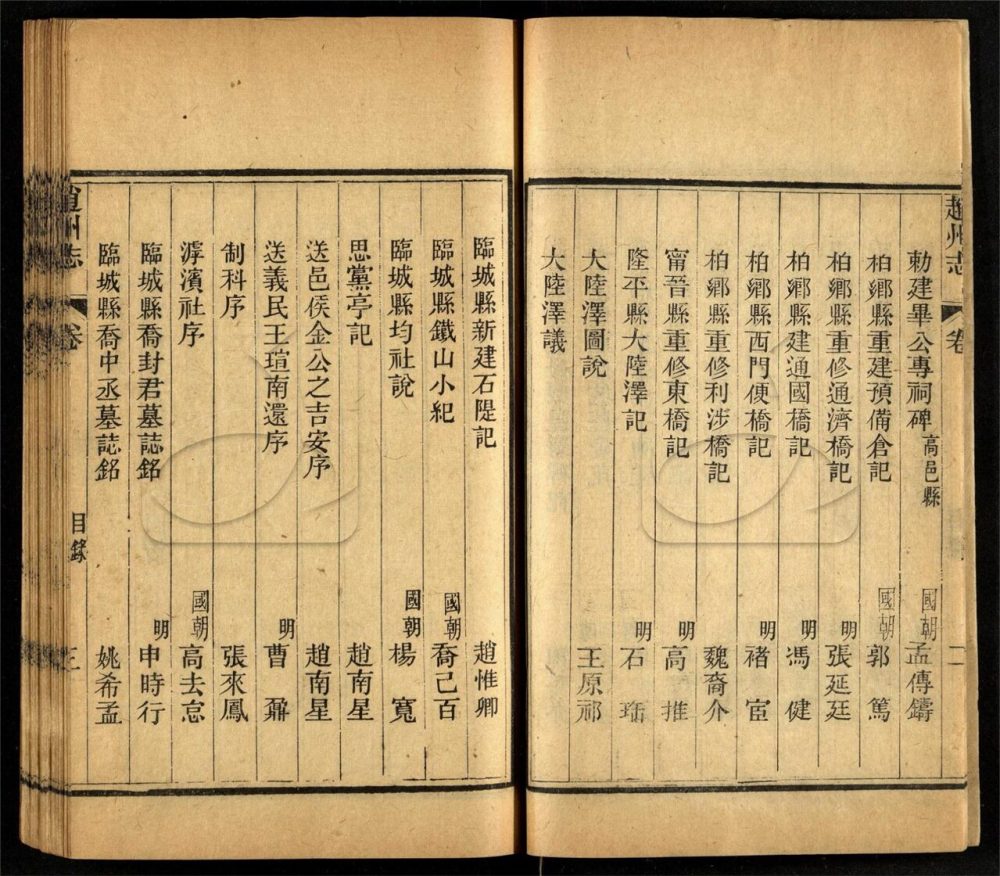 趙州志 卷 二
勅建畢公專祠碑 高邑縣 國朝 孟傳鑄
柏鄉縣重建預備倉記 國朝 郭篤
柏鄉縣重修通濟橋記 明 張延廷
柏鄉縣建通國橋記 明 馮健
柏鄉縣西門便橋記 明 褚宦
柏鄉縣重修利涉橋記 魏裔介
甯晉縣重修東橋記 明 高推
隆平縣大陸澤記 明 石
大陸澤圖說 王原祁
大陸澤議
臨城縣新建石隄記 趙惟卿
臨城縣鐵山小紀 國朝 喬己百
臨城縣均社說 國朝 楊寬
思黨亭記 趙南星
送邑侯金公之吉安序 趙南星
送義民王瑄南還序 明 曹鼐
制科序 張來鳳
滹濱社序 國朝 高去
臨城縣喬封君墓誌銘 明 申時行
臨城縣喬中丞墓誌銘 姚希孟
趙州志 卷 目錄 三